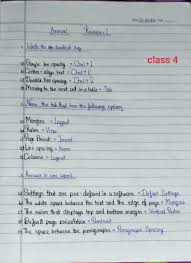 Annual Revision 1
class 4
1. Write the shortcut key
a) Single line spacing = Ctrl + 1
b) Center-align text = Ctrl + E
c) Double line spacing = Ctrl + 2
d) Moving to the next cell in a table = Tab
2. Name the tab that has the following options.
a) Margins = Layout
b) Ruler = View
c) Page Break = Insert
d) Line spacing = Home
e) Columns = Layout
Answer in one word.
a) Settings that are pre-defined in a software = Default Settings
b) The white space between the text and the edge of page = Margins
c) The ruler that displays top and bottom margin = Vertical Ruler
d) Default page orientation = Portrait
e) The space between the paragraphs = Paragraph Spacing